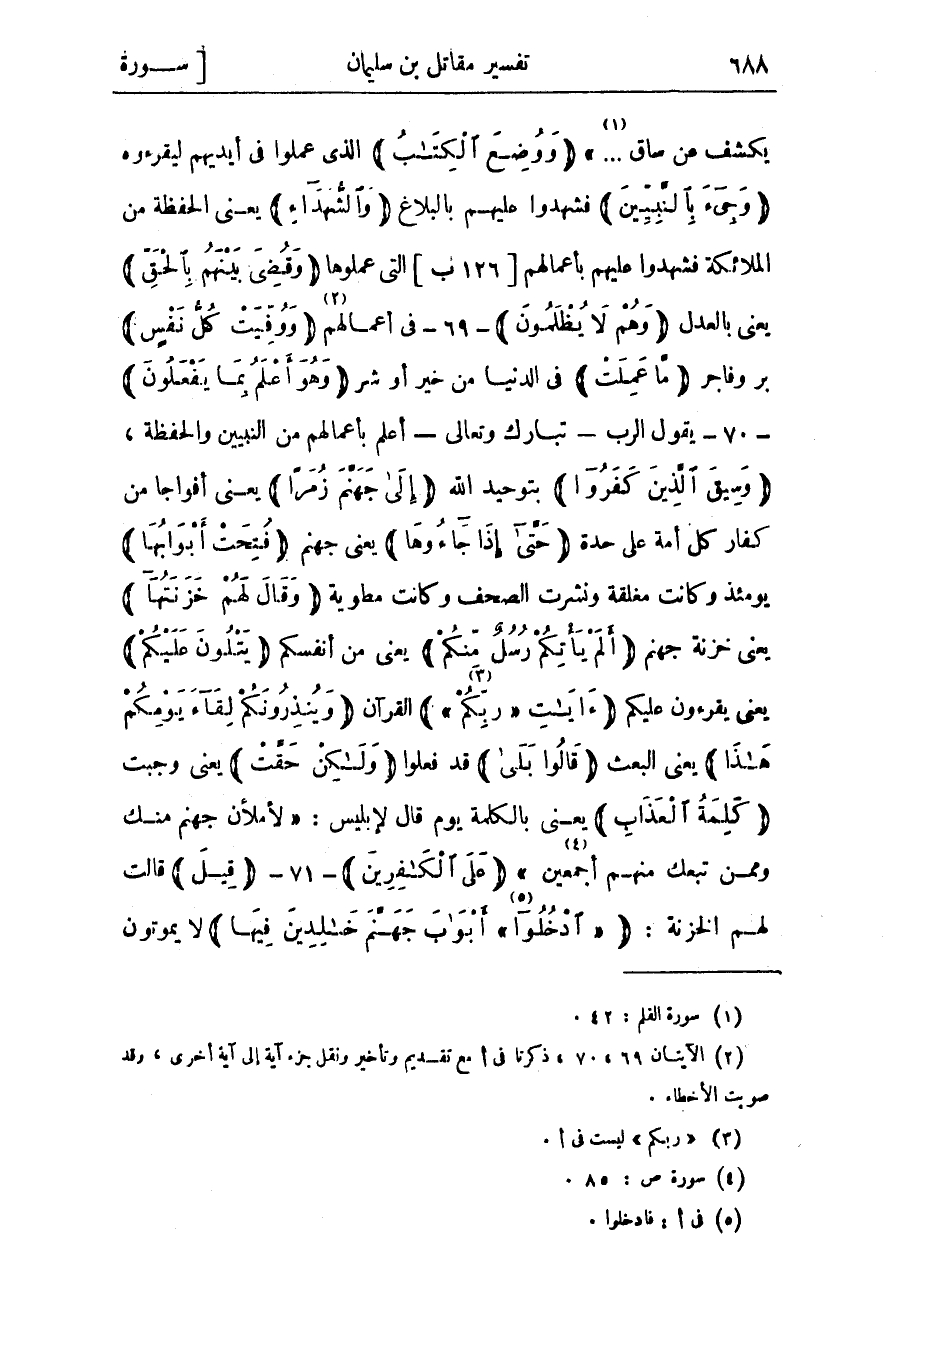 ٦٨٨ تفسير مقاتل بن سليمان [ ســورة
يكشف عن ساق ... » (١) ﴿ وَوُضِعَ ٱلْكِتَـٰبُ ﴾ الذى عملوا فى أيديهم ليقرءوه
﴿ وَجِىءَ بِٱلنَّبِيِّينَ ﴾ فشهدوا عليهـم بالبلاغ ﴿ وَٱلشُّهَدَآءِ ﴾ يعـنى الحفظة من
الملائكة فشهدوا عليهم بأعمالهم [ ١٢٦ ب ] التى عملوها ﴿ وَقُضِىَ بَيْنَهُم بِٱلْحَقِّ ﴾
يعنى بالعدل ﴿ وَهُمْ لَا يُظْلَمُونَ ﴾ - ٦٩ - فى أعمـالهم (٢) ﴿ وَوُفِّيَتْ كُلُّ نَفْسٍ ﴾
بر وفاجر ﴿ مَّا عَمِلَتْ ﴾ فى الدنيـا من خير أو شر ﴿ وَهُوَ أَعْلَمُ بِمَـا يَفْعَلُونَ ﴾
- ٧٠ - يقول الرب — تبـارك وتعالى — أعلم بأعمالهم من النبيين والحفظة ،
﴿ وَسِيقَ ٱلَّذِينَ كَفَرُوٓا ﴾ بتوحيد الله ﴿ إِلَىٰ جَهَنَّمَ زُمَرًا ﴾ يعـنى أفواجا من
كفار كل أمة على حدة ﴿ حَتَّىٰٓ إِذَا جَآءُوهَا ﴾ يعنى جهنم ﴿ فُتِحَتْ أَبْوَابُهَا ﴾
يومئذ وكانت مغلقة ونشرت الصحف وكانت مطوية ﴿ وَقَالَ لَهُمْ خَزَنَتُهَآ ﴾
يعنى خزنة جهنم ﴿ أَلَمْ يَأْتِكُمْ رُسُلٌ مِّنكُمْ ﴾ يعنى من أنفسكم ﴿ يَتْلُونَ عَلَيْكُمْ ﴾
يعنى يقرءون عليكم ﴿ ءَايَـٰتِ « رَبِّكُمْ » (٣) ﴾ القرآن ﴿ وَيُنذِرُونَكُمْ لِقَآءَ يَوْمِكُمْ
هَـٰذَا ﴾ يعنى البعث ﴿ قَالُوا بَلَىٰ ﴾ قد فعلوا ﴿ وَلَـٰكِنْ حَقَّتْ ﴾ يعنى وجبت
﴿ كَلِمَةُ ٱلْعَذَابِ ﴾ يعـنى بالكلمة يوم قال لإبليس : « لأملأن جهنم منـك
وممـن تبعك منهـم أجمعين » (٤) ﴿ عَلَى ٱلْكَـٰفِرِينَ ﴾ - ٧١ - ﴿ قِيـلَ ﴾ قالت
لهـم الخزنة : ﴿ « ٱدْخُلُوٓا » (٥) أَبْوَٰبَ جَهَنَّمَ خَـٰلِدِينَ فِيهَـا ﴾ لا يموتون
(١) سورة القلم : ٤٢ .
(٢) الآيتـان ٦٩ ، ٧٠ ، ذكرتا فى أ مع تقـديم وتأخير ونقل جزء آية إلى آية أخرى ، وقد
صوبت الأخطاء .
(٣) « ربكم » ليست فى أ .
(٤) سورة ص : ٨٥ .
(٥) فى أ : فادخلوا .